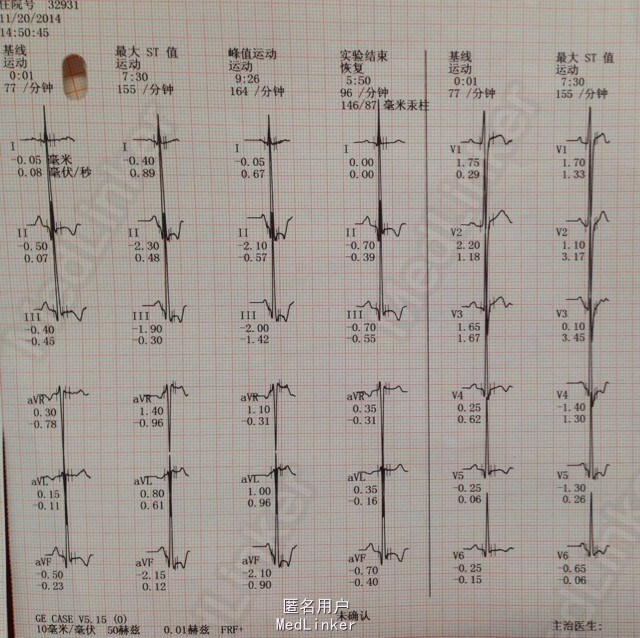 住院号 32931
11/20/2014
14:50:45
基线
运动
0:01
77 /分钟
最大 ST 值
运动
7:30
155 /分钟
峰值运动
运动
9:26
164 /分钟
实验结束
恢复
5:50
96 /分钟
146/87 毫米汞柱
基线
运动
0:01
77 /分钟
最大 ST 值
运动
7:30
155 /分钟
I
-0.05 毫米
0.08 毫伏/秒
I
-0.40
0.89
I
-0.05
0.67
I
0.00
0.00
V1
1.75
0.29
V1
1.70
1.33
II
-0.50
0.07
II
-2.30
0.48
II
-2.10
-0.57
II
-0.70
-0.39
V2
2.20
1.18
V2
1.10
3.17
III
-0.40
-0.45
III
-1.90
-0.30
III
-2.00
-1.42
III
-0.70
-0.55
V3
1.65
1.67
V3
0.10
3.45
aVR
0.30
-0.78
aVR
1.40
-0.96
aVR
1.10
-0.31
aVR
0.35
-0.31
V4
0.25
0.62
V4
-1.40
1.30
aVL
0.15
-0.11
aVL
0.80
0.61
aVL
1.00
0.96
aVL
0.35
-0.16
V5
-0.25
0.06
V5
-1.30
0.26
aVF
-0.50
-0.23
aVF
-2.15
0.12
aVF
-2.10
-0.90
aVF
-0.70
-0.40
V6
-0.25
-0.15
V6
-0.65
-0.06
GE CASE V5.15 (0)
10毫米/毫伏 50赫兹 0.01赫兹 FRF+
未确认
主治医生:
匿名用户
MedLinker
MedLinker
MedLinker
MedLinker